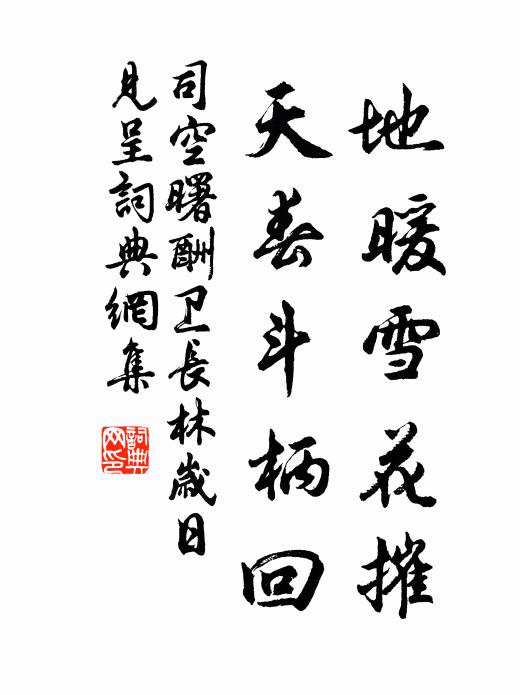 地暖雪花摧
天春斗柄回
司空曙酬卫長林歲日
見呈詞典網集
詞典網印